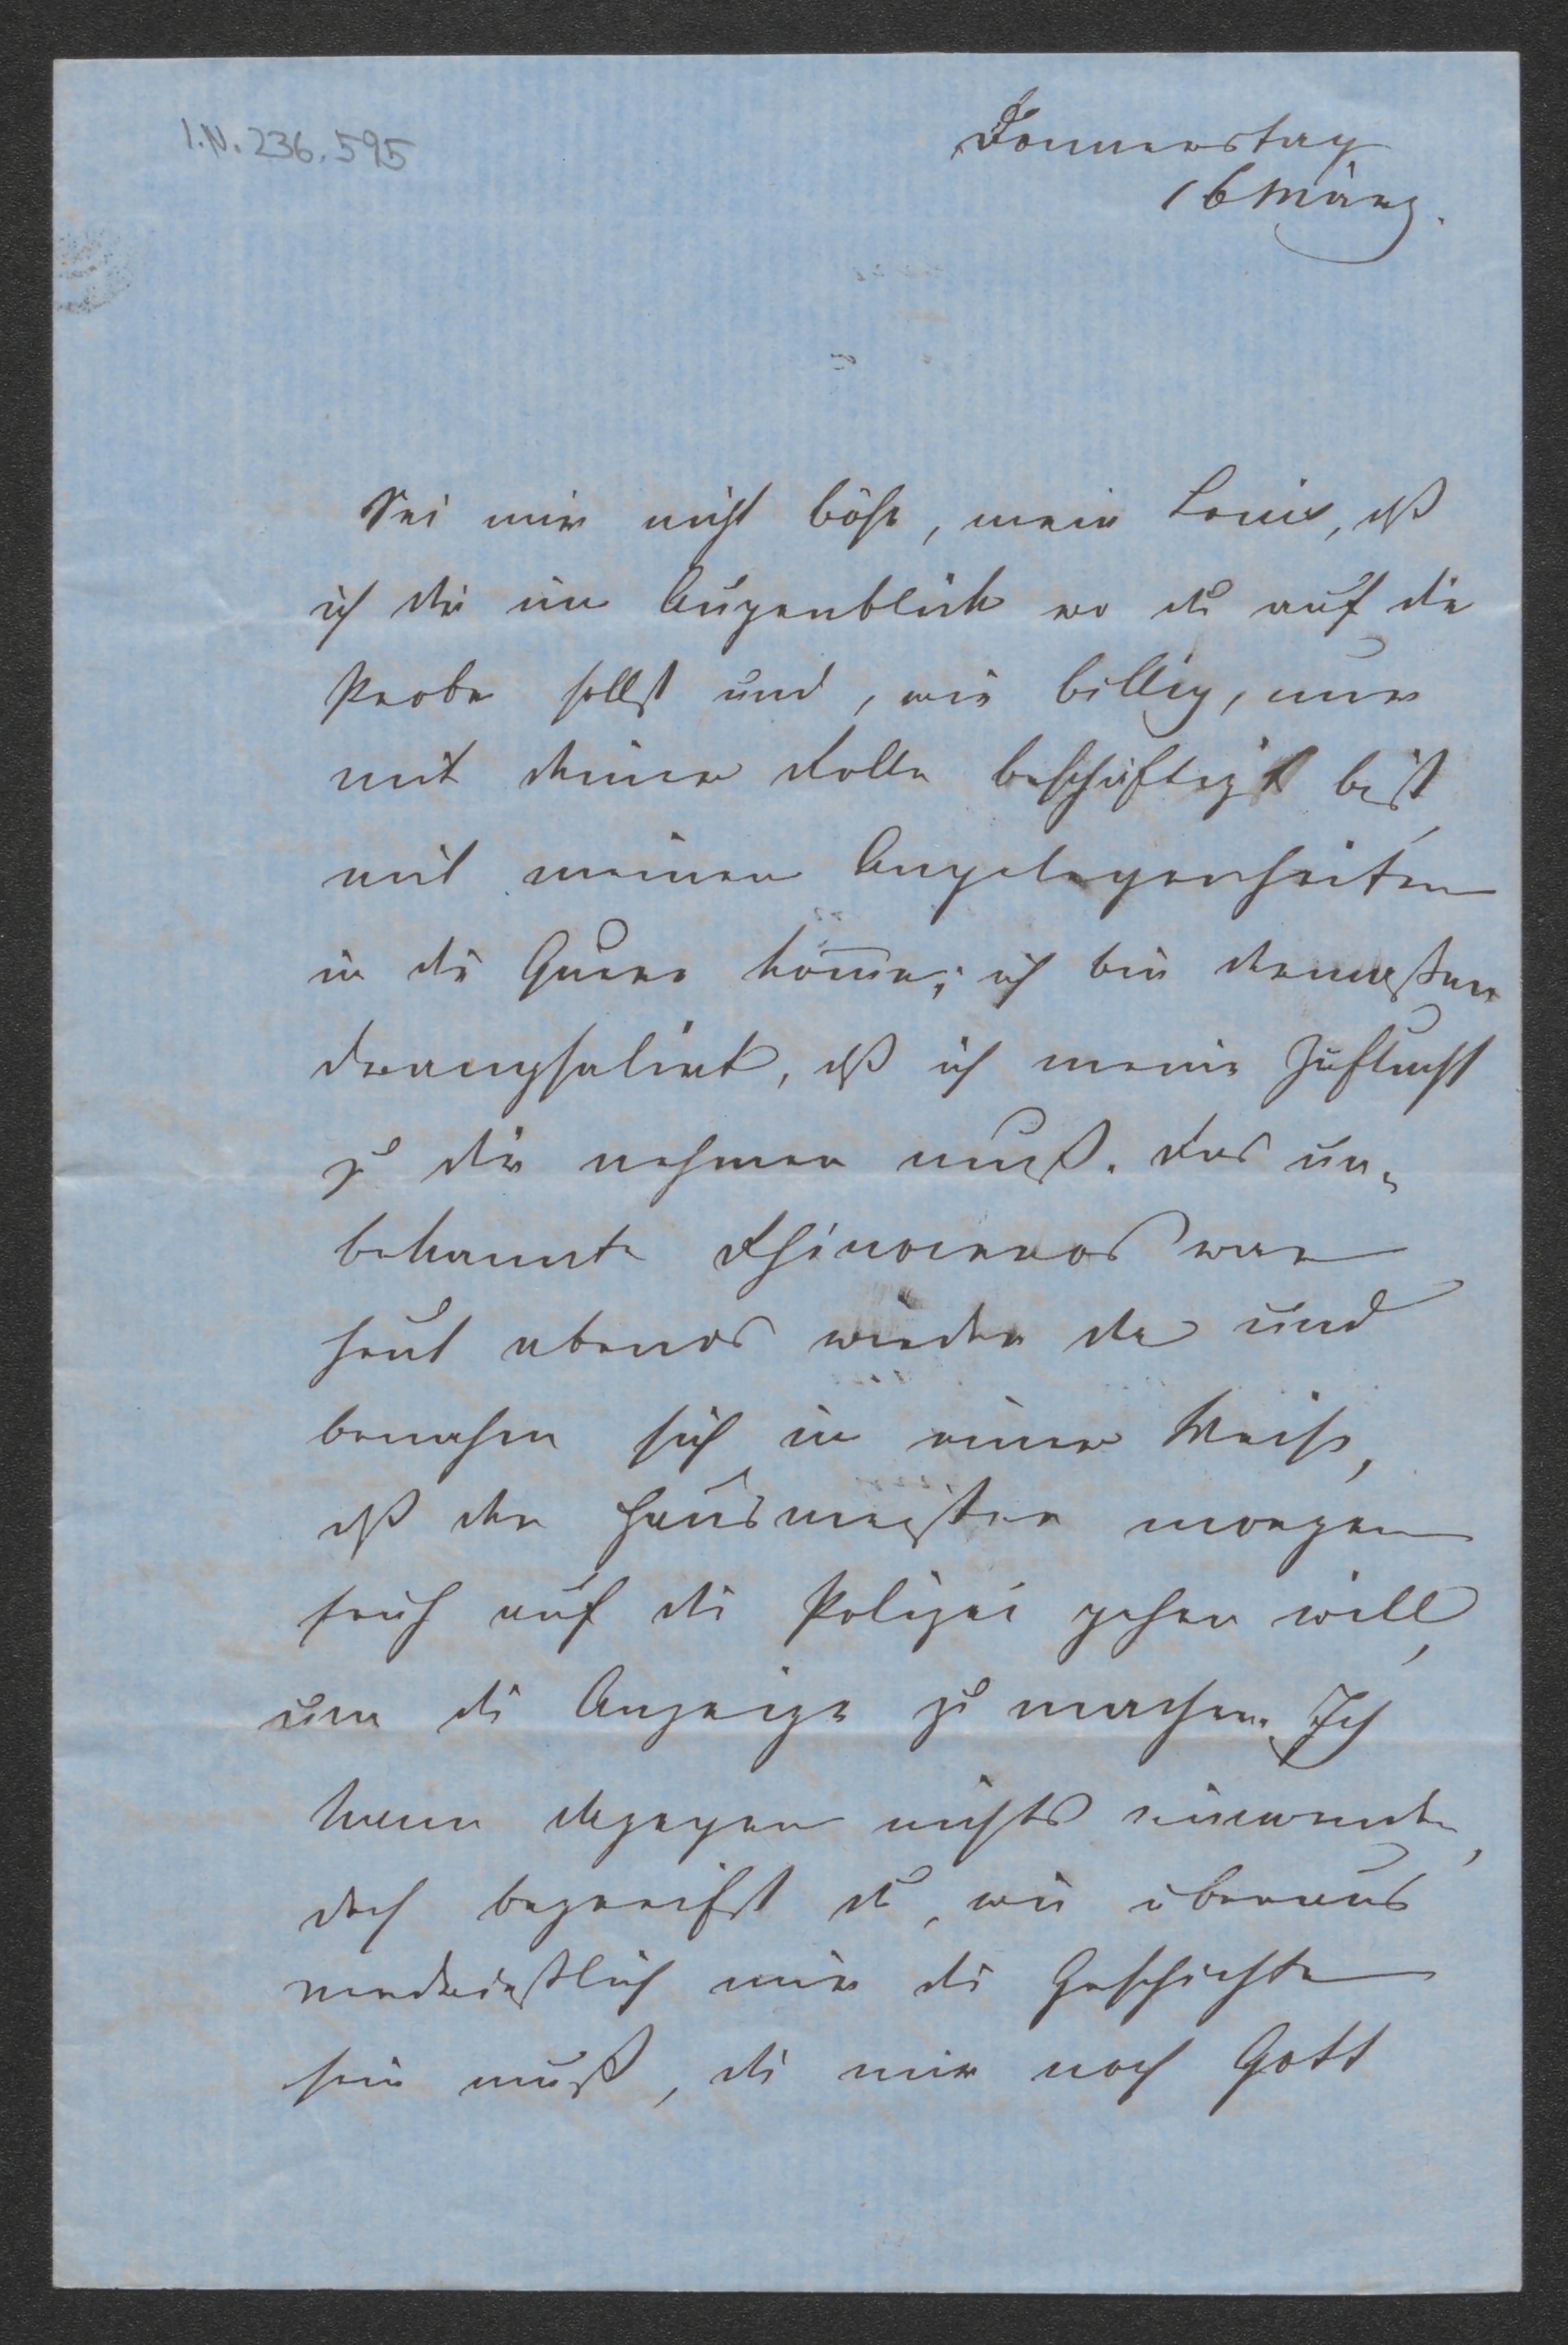 I.N. 236.595
Donnerstag
16 März.
Sei mir nicht böse, mein Louis, dß
ich dir im Augenblick wo du auf die
Probe sollst und, wie billig, nur
mit deiner Rolle beschäftigt bist,
mit meinen Angelegenheiten
in die Quere kom̄e; ich bin dermaßen
drangsalirt, dß ich meine Zuflucht
zu dir nehmen muß. Das un-
bekannte Rhinoceros war
heut abends wieder da und
benahm sich in einer Weise,
dß der Hausmeister morgen
früh auf die Polizei gehen will,
um die Anzeige zu machen. Ich
kann dagegen nichts einwenden,
doch begreifst du, wie überaus
verdrießlich mir die Geschichte
sein muß, die mir noch Gott